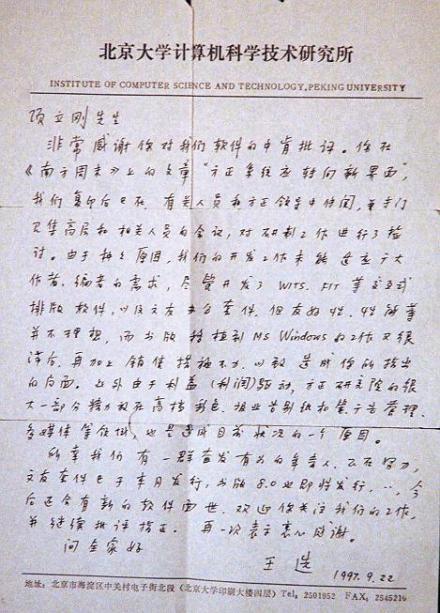 北京大学计算机科学技术研究所
INSTITUTE OF COMPUTER SCIENCE AND TECHNOLOGY, PEKING UNIVERSITY
项立刚先生
非常感谢你对我们软件的中肯批评。你在
《南方周末》上的文章"方正系统应转向新界面",
我们复印后已在有关人员和方正领导中传阅,并专门
召集高层和相关人员的会议,对研制工作进行了检
讨。由于种种原因,我们的开发工作未能适应广大
作者、编者的需求,尽管开发了WITS、FIT等交互式
排版软件,以及文友平台套件,但友好性、性能等
并不理想,而书版移植到MS Windows的工作又很
滞后,再加上销售措施不力,以致造成你所指出
的局面。此外由于利益(利润)驱动,方正研究院的很
大一部分精力放在高档彩色、报业告别纸和笔、广告管理、
多媒体等领域,也是造成目前状况的一个原因。
所幸我们有一群奋发有为的年青人,正在努力,
文友套件已于本月发行,书版8.0也即将发行,…,今
后还会有新的软件面世,欢迎你关注我们的工作,
并继续批评指正。再一次表示衷心感谢。
问全家好
王选
1997.9.22
地址:北京市海淀区中关村电子街北段(北京大学印刷大楼四层)Tel:2501952 FAX:2545214